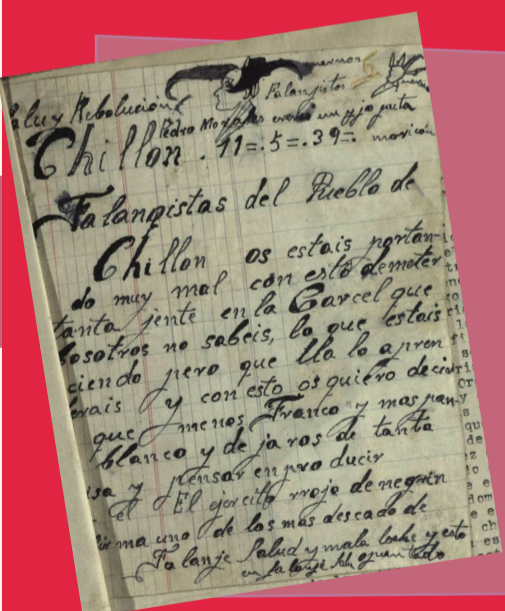 Falangistas
Salu y Rebolución
Pedro Morales eres un yjo puta
Chillon . 11=.5=.39=. moricon
Falangistas del Pueblo de
Chillon os estais portan-
do muy mal con esto de meter
tanta jente en la Carcel que
bosotros no sabeis, lo que estais
ciendo pero que lla lo apren
derais y con esto os quiero decir
que menos Franco y mas pan
blanco y de jaros de tanta
isa y pensar en pro ducir
el El ejercito rrojo de negrin
firma uno de los mas descado de
Falanje Salud y mala leche y esto